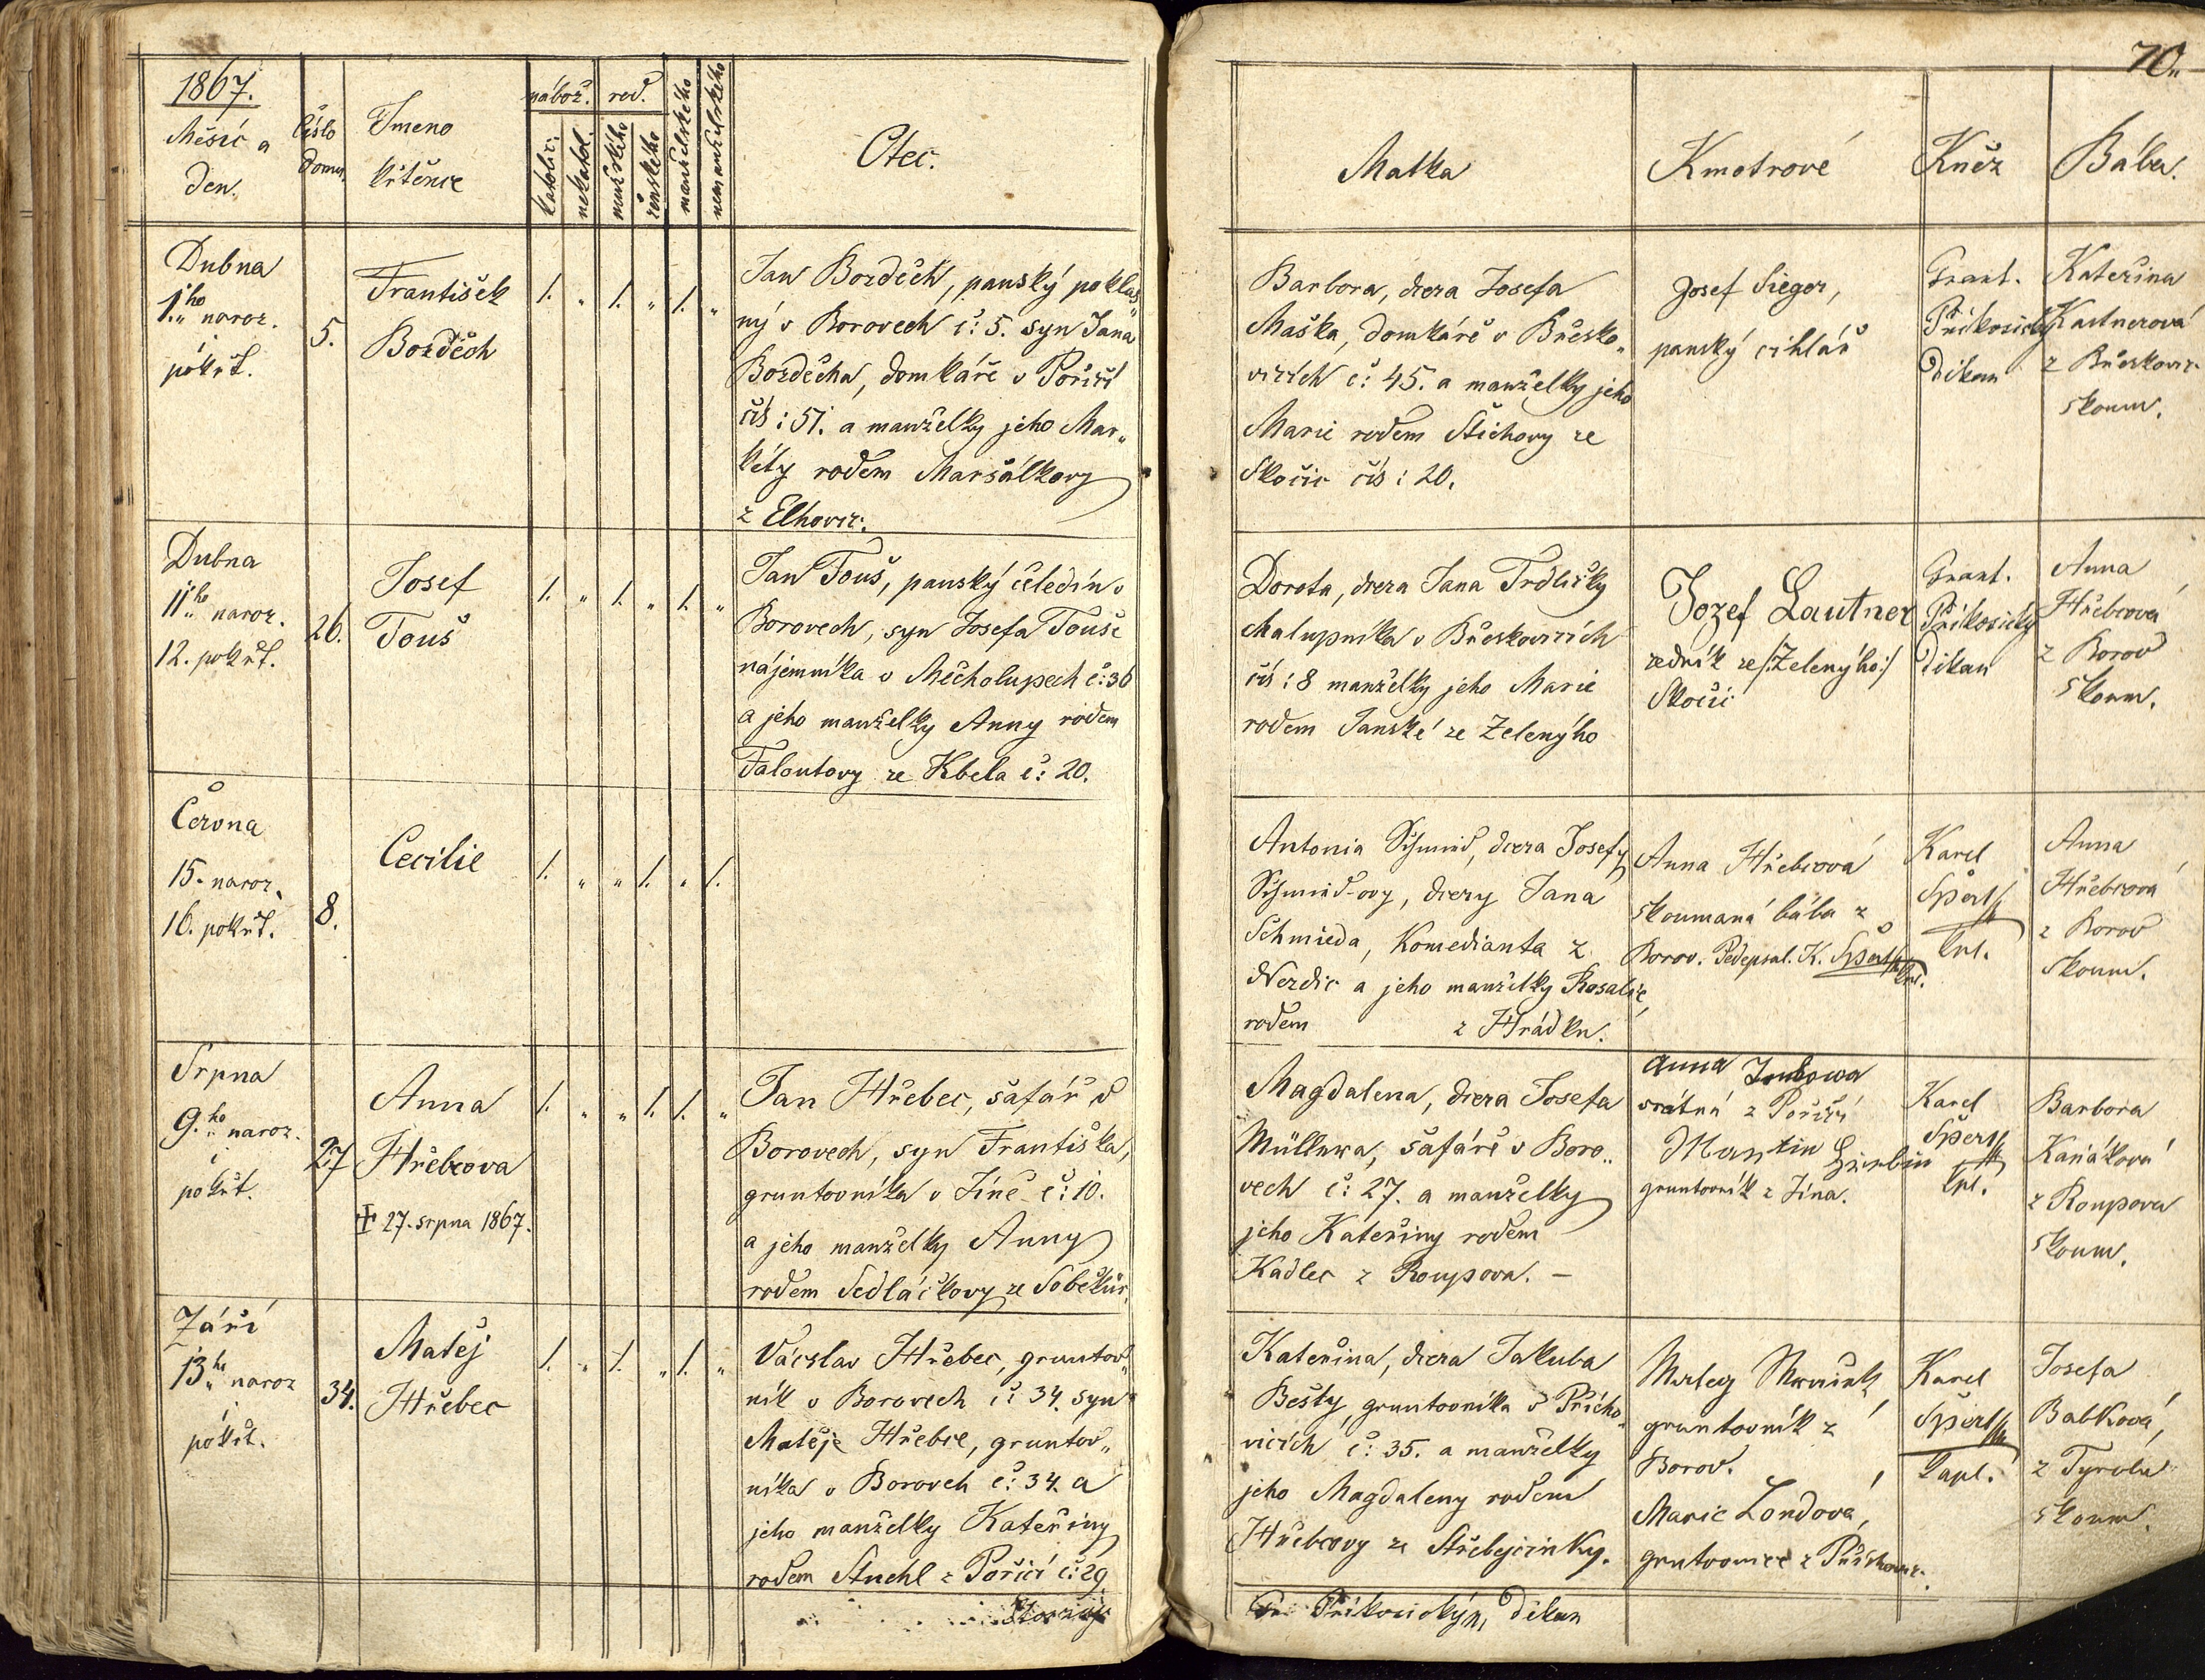 70.
1867.
Měsíc a
den.
číslo
domu.
Jmeno
křtěnce
nábož.
katolic.
nekatol.
rod.
mužského
ženského
manželského
nemanželského
Otec.
Matka
Kmotrové
Kněz
Bába.
Dubna
1.ho naroz.
i
pokřt.
5.
František
Bozděch
1. „ 1. „ 1. „
Jan Bozděch, panský poklas„
ný v Borovech č: 5. syn Jana
Bozděcha, domkáře v Poříčí
čís: 51. a manželky jeho Mar„
kéty rodem Maršálkovy
z Elhovic.
Barbora, dcera Josefa
Maška, domkáře v Břesko„
vicích č: 45. a manželky jeho
Marie rodem Štichovy ze
Skočic čís: 20.
Josef Sieger,
panský cihlář
Frant.
Příkosický
Děkan
Kateřina
Kastnerová
z Břeskovic
skoum.
Dubna
11.ho naroz.
12. pokřt.
26.
Josef
Touš
1. „ 1. „ 1. „
Jan Touš, panský čeledín v
Borovech, syn Josefa Touše
nájemníka v Měcholupech č: 36
a jeho manželky Anny rodem
Faloutovy ze Kbela č: 20.
Dorota, dcera Jana Trdličky
chalupníka v Břeskovicích
čís: 8 manželky jeho Marie
rodem Janské ze Zelenýho
Jozef Lautner
zedník ze /:Zelenýho:/
Skočic
Frant.
Příkosický
Děkan
Anna
Hřebcová
z Borov
skoum.
Června
15. naroz.
16. pokřt.
8.
Cecilie
1. „ „ 1. „ 1.
Antonia Schmid, dcera Josefy
Schmid-ovy, dcery Jana
Schmieda, Komedianta z
Nezdic a jeho manželky Rosalie,
rodem z Hrádku.
Anna Hřebcová
skoumaná bába z
Borov. Podepsal. K. Špert
Karel
Špert
kpl.
Anna
Hřebcová
z Borov
skoum.
Srpna
9.ho naroz.
i
pokřt.
27
Anna
Hřebcova
✝ 27. srpna 1867.
1. „ „ 1. 1. „
Jan Hřebec, šafář v
Borovech, syn Františka,
gruntovníka v Jíně č: 10.
a jeho manželky Anny
rodem Sedláčkovy ze Soběkur.
Magdalena, dcera Josefa
Müllera, šafáře v Boro„
vech č: 27. a manželky
jeho Kateřiny rodem
Kadlec z Roupova. –
Anna
vrátná z Poříčí
Martin
gruntovník z Jína.
Karel
Špert
kpl.
Barbora
Kaňáková
z Roupova
skoum.
Září
13.ho naroz
i
pokřt.
34.
Matěj
Hřebec
1. „ 1. „ 1. „
Vácslav Hřebec, gruntov„
ník v Borovech č: 34. syn
Matěje Hřebce, gruntov„
níka v Borovech č: 34. a
jeho manželky Kateřiny
rodem Stuchl z Poříčí č: 29.
Kateřina, dcera Jakuba
Bešty, gruntovníka v Přícho„
vicích č: 35. a manželky
jeho Magdaleny rodem
Hřebcovy ze Střebejcinky.
Matey
gruntovník z
Borov.
Marie Londová,
z Příchovic.
Karel
Špert
kapl.
Josefa
Babková,
z Tyrolu
skoum.
Příkosickým, Děkan